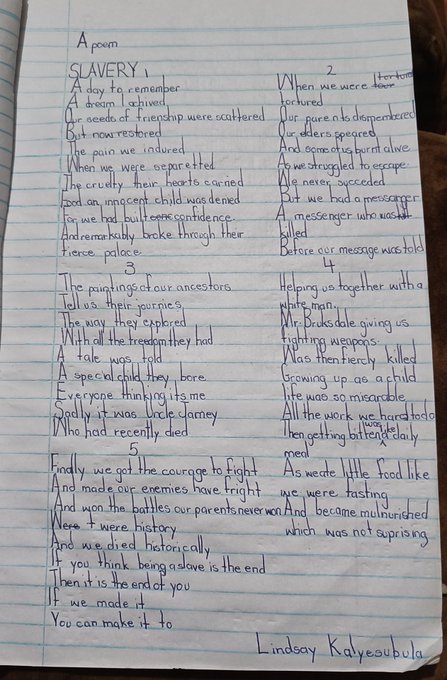 A poem
SLAVERY 1
A day to remember
A dream I achived
Our seeds of frienship were scattered
But now restored
The pain we indured
When we were separetted
The cruelty their hearts carried
Food an innocent child was denied
For we had built confidence
And remarkably broke through their
fierce palace
2
When we were torture
tortured
Our parents dismembered
Our elders speared
And some of us burnt alive
As we struggled to escape
We never succeded
But we had a messanger
A messenger who was
killed
Before our message was told
3
The paintings of our ancestors
Tell us their journies
The way they explored
With all the treedom they had
A tale was told
A special child they bore
Everyone thinking its me
Sadly it was Uncle Jamey
Who had recently died
4
Helping us together with a
white man.
Mr. Bruksdale giving us
fighting weapons.
Was then fiercly killed
Growing up as a child
life was so misarable
All the work we had to do
Then getting bitten was like a daily
meal
As we ate little food like
we were tasting
And became mulnurished
which was not suprising
5
Finally we got the courage to fight
And made our enemies have fright
And won the battles our parents never won
Were t were history
And we died historically
If you think being a slave is the end
Then it is the end of you
If we made it
You can make it to
Lindsay Kalyesubula